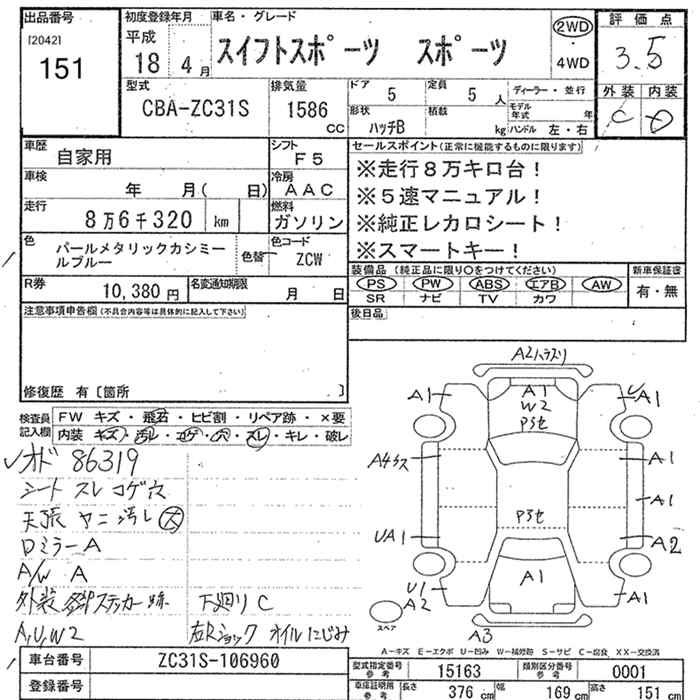 出品番号
[2042]
151
初度登録年月
平成
18 4月
車名・グレード
スイフトスポーツ スポーツ
2WD
4WD
評価点
3.5
外装 内装
C D
型式
CBA-ZC31S
排気量
1586
CC
ドア
5
定員
5人
形状
ハッチB
積載
kg
ディーラー・並行
モデル年式 年
ハンドル 左・右
車歴
自家用
シフト
F5
車検
年 月( 日)
冷房
AAC
走行
8万6千320 km
燃料
ガソリン
色
パールメタリックカシミールブルー
色替
色コード
ZCW
R券
10,380 円
名変通知期限
月 日
セールスポイント(正常に機能するものに限ります)
※走行8万キロ台!
※5速マニュアル!
※純正レカロシート!
※スマートキー!
装備品 (純正品に限り○をつけてください)
PS PW ABS エアB AW
SR ナビ TV カワ
新車保証書
有・無
後日品
注意事項申告欄(不具合内容等は具体的に記入して下さい)
修復歴 有〔箇所 〕
検査員記入欄
FW キズ・飛石・ヒビ割・リペア跡・×要
内装 キズ・汚レ・コゲ・穴・スレ・キレ・破レ
オド 86319
シート スレ コゲ穴
天張 ヤニ汚レ 大
Dミラー A
A/W A
外装 ステッカー跡
A,U,W2
下廻り C
左Rショック オイルにじみ
A2ハラズリ
A1
A1
W2
Pラセ
UA1
A4
A1
A1
Pラセ
UA1
A2
U1
A2
A1
A1
スペア
A3
A-キズ E-エクボ U-凹み W-補修跡 S-サビ C-腐食 XX-交換済
車台番号
ZC31S-106960
登録番号
型式指定番号
参考
15163
類別区分番号
参考
0001
車庫証明用
参考
長さ
376 cm
幅
169 cm
高さ
151 cm